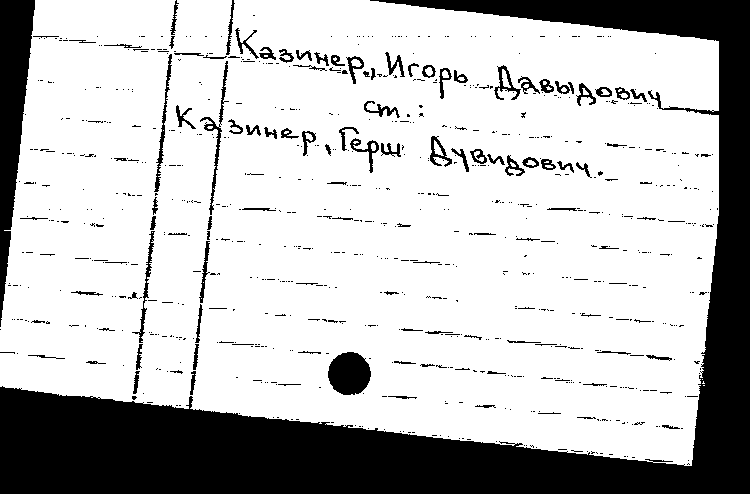 Казинер, Игорь Давыдович
ст.:
Казинер, Герш Дувидович.